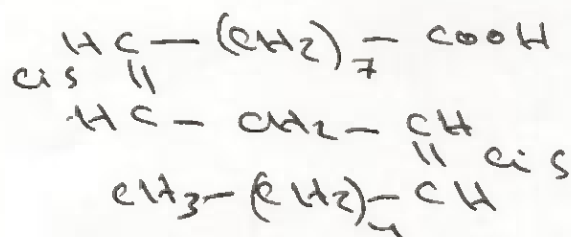 HC — (CH2)7 — COOH
cis ||
HC — CH2 — CH
|| cis
CH3 — (CH2)4 — CH